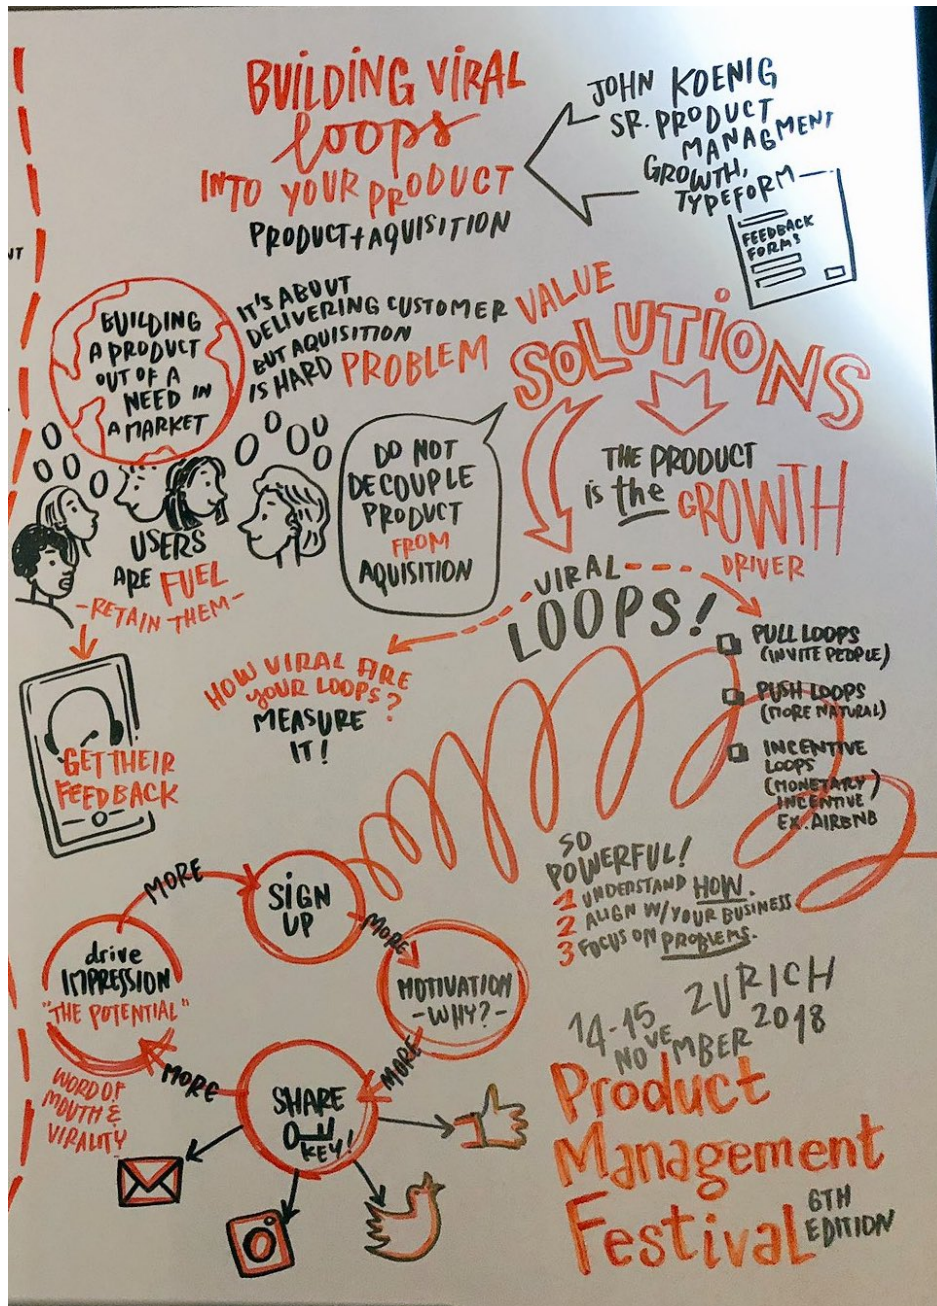 BUILDING VIRAL
loops
INTO YOUR PRODUCT
PRODUCT + AQUISITION
JOHN KOENIG
SR. PRODUCT
MANAGMENT
GROWTH,
TYPEFORM
FEEDBACK
FORMS
BUILDING
A PRODUCT
OUT OF A
NEED IN
A MARKET
IT'S ABOUT
DELIVERING CUSTOMER VALUE
BUT AQUISITION
IS HARD PROBLEM
SOLUTIONS
DO NOT
DECOUPLE
PRODUCT
FROM
AQUISITION
THE PRODUCT
is the GROWTH
DRIVER
USERS
ARE FUEL
- RETAIN THEM -
GET THEIR
FEEDBACK
VIRAL
LOOPS!
HOW VIRAL ARE
YOUR LOOPS?
MEASURE
IT!
PULL LOOPS
(INVITE PEOPLE)
PUSH LOOPS
(MORE NATURAL)
INCENTIVE
LOOPS
(MONETARY)
INCENTIVE
EX. AIRBNB
MORE
SIGN
UP
MORE
MOTIVATION
- WHY? -
MORE
SHARE
KEY!
MORE
drive
IMPRESSION
"THE POTENTIAL"
WORD OF
MOUTH &
VIRALITY
SO
POWERFUL!
1 UNDERSTAND HOW.
2 ALIGN W/YOUR BUSINESS
3 FOCUS ON PROBLEMS.
14-15 ZURICH
NOVEMBER 2018
Product
Management
Festival
6TH
EDITION